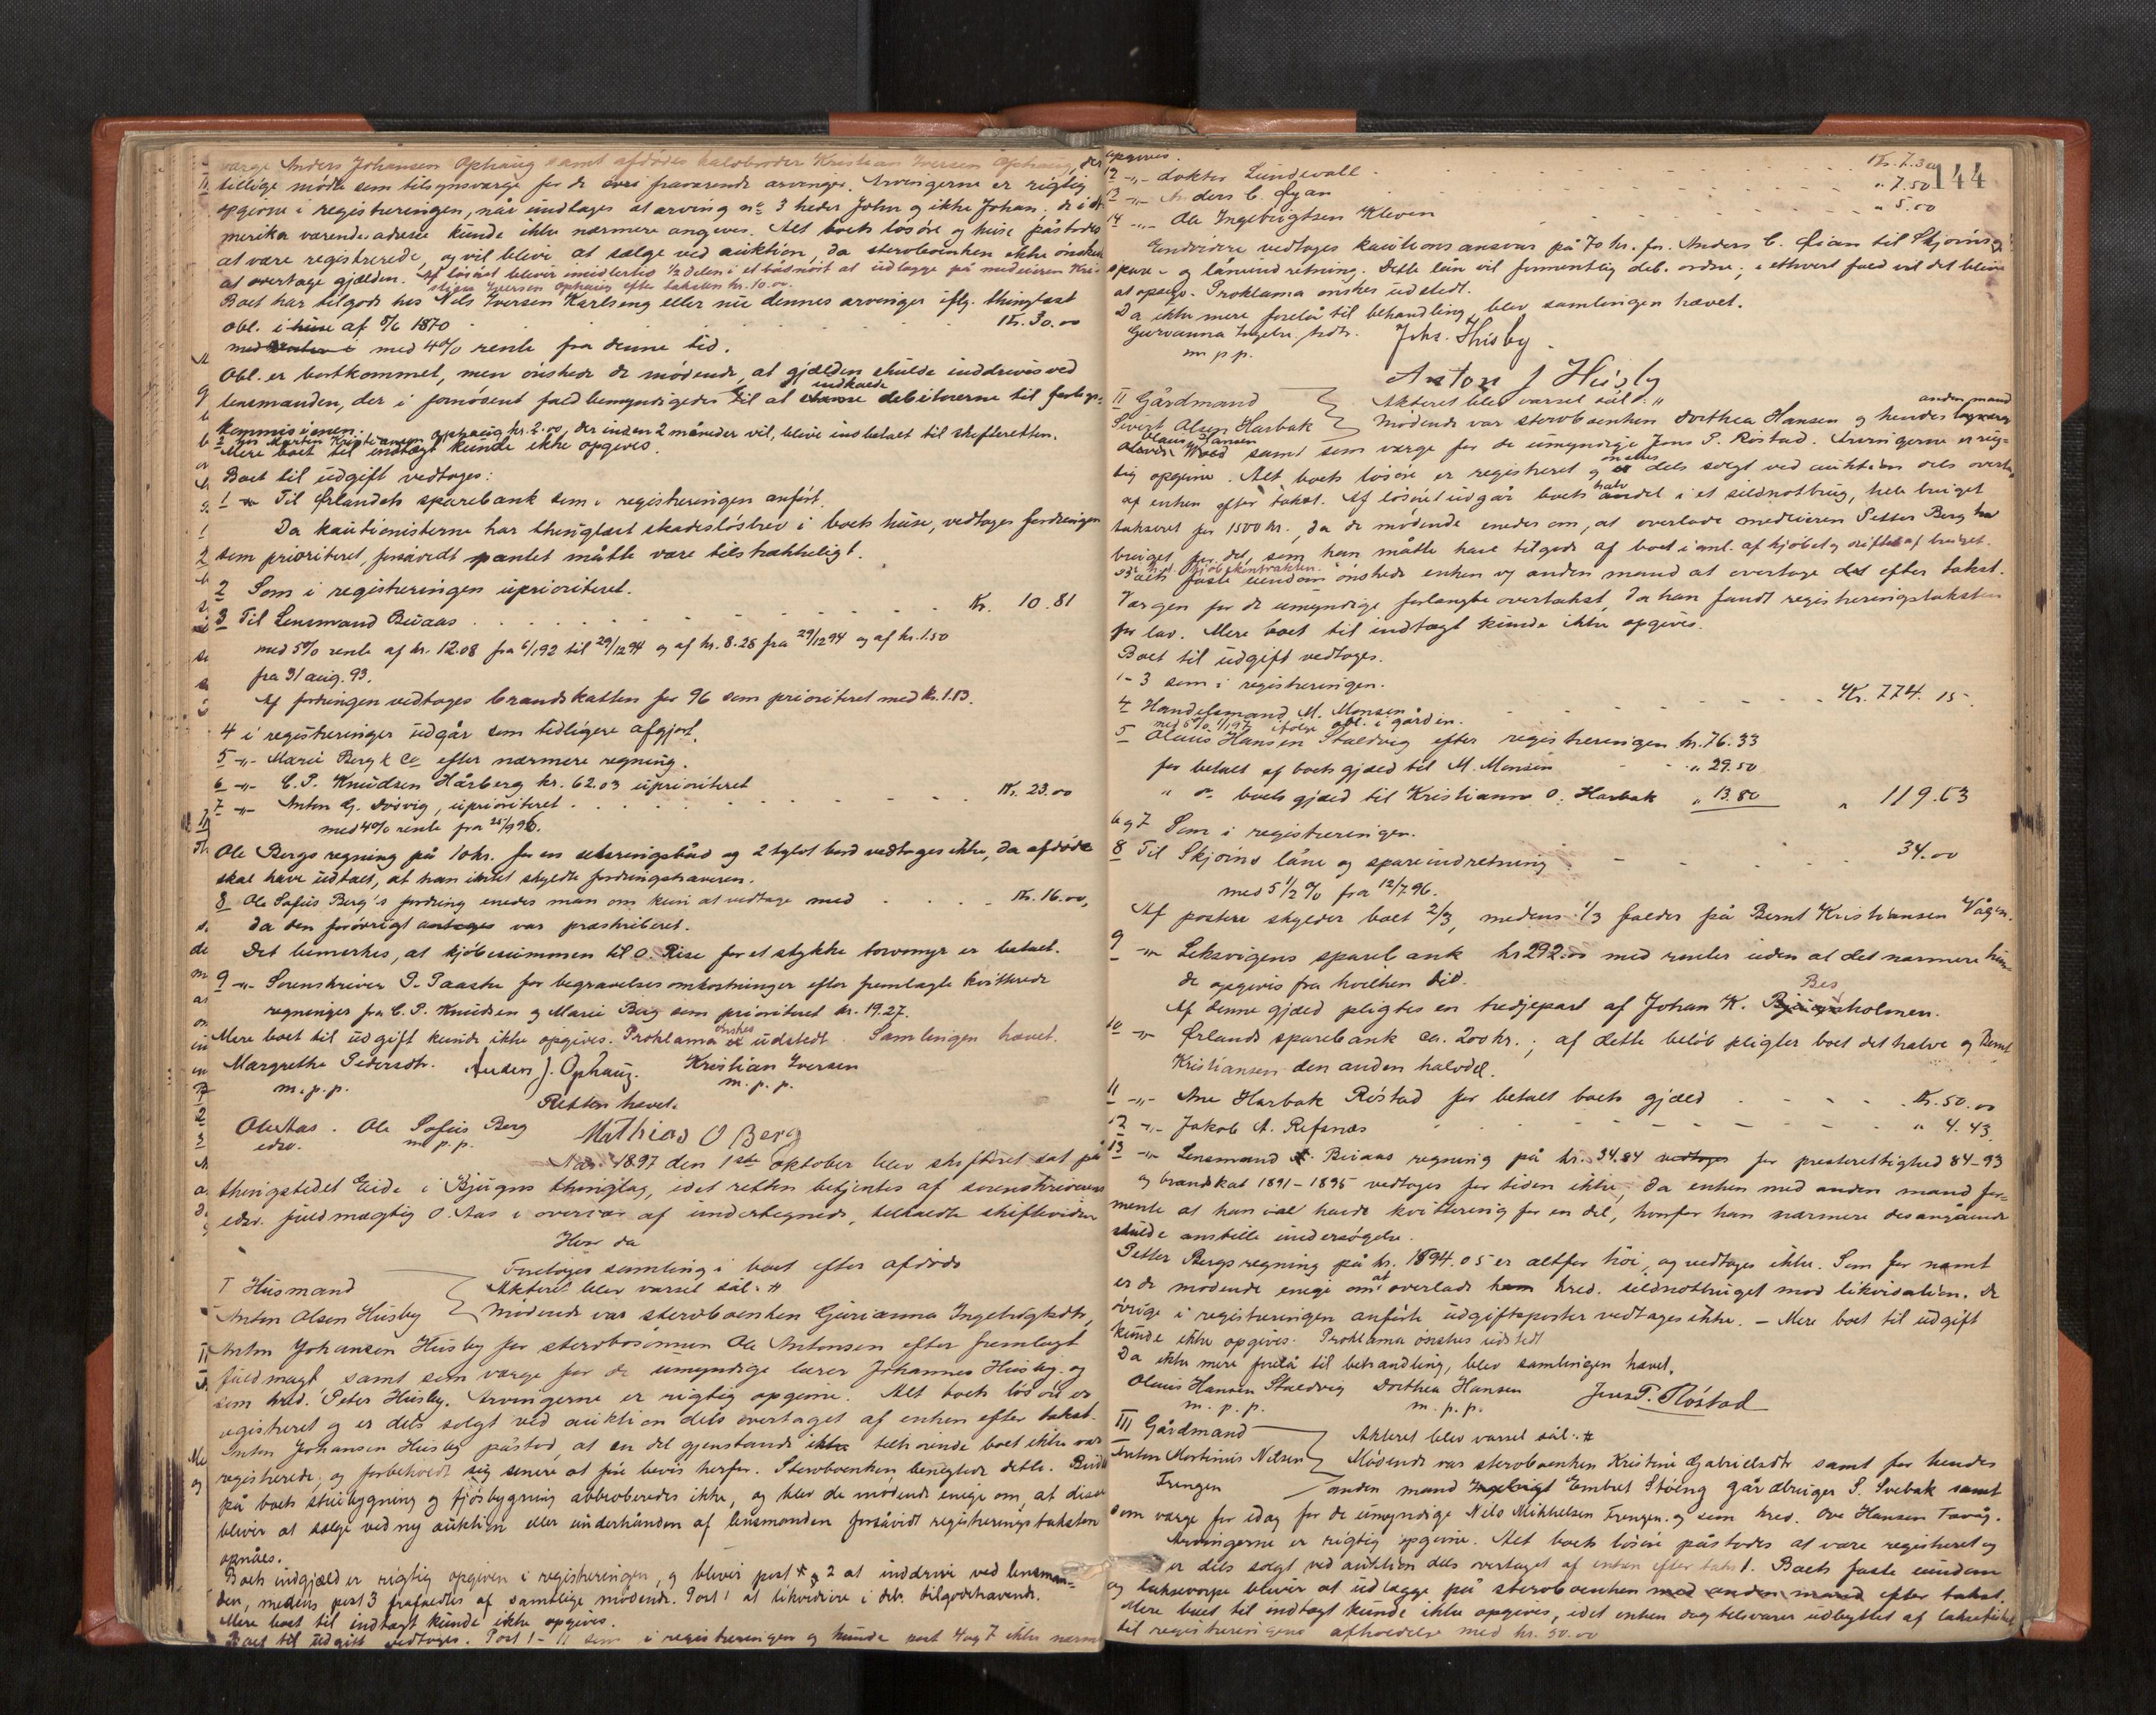 værge Anders Johansen Ophaug samt afdødes halvbroder Kristian Iversen Ophaug, der
tillige mødte som tilsynsværge for de øvri fraværende arvinger. Arvingerne er rigtig
opgivne i registreringen, når undtages at arving no 3 heder John og ikke Johan, de i A-
merika værendes adresse kunde ikke nærmere angives. Alt boets løsøre og huse påstodes
at være registrerede, og vil blive at sælge ved auktion, da sterboenken ikke ønsker
at overtage gjælden. Af løsøret bliver imidlertid 1/2 delen i et bådnøst at udlægge på medeieren Kri-
stian Iversen Ophaug efter taksten kr. 10.00.
Boet har tilgode hos Nils Iversen Karlseng eller nu dennes arvinger iflg. thinglæst
obl. i huse af 8/6 1870 Kr. 30.00
med 4% rente fra denne tid.
Obl. er bortkommet, men ønskede de mødende, at gjælden skulde inddrives ved
lensmanden, der i fornødent fald bemyndigedes til at indkalde debitorerne til forligs-
kommisionen.
2 Hos Martin Kristiansen Ophaug kr. 2.00, der inden 2 måneder vil blive indbetalt til skifteretten.
Mere boet til indtægt kunde ikke opgives.
Boet til udgift vedtoges:
1 -„- Til Ørlandets sparebank som i registreringen anført.
Da kautionisterne har thinglæst skadesløsbrev i boets huse, vedtages fordringen
som prioriteret, forsåvidt pantet måtte være tilstrækkeligt.
2 Som i registreringen uprioriteret.
3 Til Lensmand Buaas Kr. 10.81
med 5% rente af kr. 12.08 fra 6/1 92 til 29/12 94 og af kr. 8.28 fra 29/12 94 og af kr. 1.50
fra 31 aug. 93.
Af fordringen vedtages brandskatten for 96 som prioriteret med kr. 1.13.
4 i registreringen udgår som tidligere afgjort.
5 -„- Marie Berg & Co efter nærmere regning.
6 -„- C. P. Knudsen Hårberg kr. 62.03 uprioriteret
7 -„- Anton G. Dosvig, uprioriteret Kr. 23.00
med 4% rente fra 25/9 96.
Ole Bergs regning på 10 kr. for en seksringsbåd og 2 tylvt bord vedtages ikke, da afdøde
skal have udtalt, at han intet skyldte fordringshaveren.
8 Ole Sofus Berg's fordring enedes man om kun at vedtage med Kr. 16.00,
da den forøvrigt antages var præskriberet.
Det bemerkes, at kjøbesummen til O. Rise for et stykke torvmyr er betalt.
9 -„- Sorenskriver P. Paaske for begravelsesomkostninger efter fremlagte kvitterede
regninger fra C. P. Knudsen og Marie Berg som prioriteret kr. 19.27.
Mere boet til udgift kunde ikke opgives. Proklama ønskes udstedt. Samlingen hævet.
Margrethe Pedersdtr. Anders J. Ophaug. Kristian Iversen
m. p. p. m. p. p.
Retten hævet.
Ole Aas. Ole Sofus Berg Mathias O Berg
edsv. m. p. p.
Aar 1897 den 1ste oktober blev skifteret sat på
thingstedet Eide i Bjugns thinglag, idet retten betjentes af sorenskriverens
edsv. fuldmægtig O. Aas i overvær af undertegnede, tilkaldte skiftevidner
Hvor da
Foretoges samling i boet efter afdøde
I Husmand Akteret blev varsel sål. #
Anton Olsen Husby Mødende var sterboenken Gurianna Ingebrigtsdtr,
Anton Johansen Husby for sterbosønnen Ole Antonsen efter fremlagt
fuldmagt, samt som værge for de umyndige lærer Johannes Husby og
som kred. Peter Husby. Arvingerne er rigtig opgivne. Alt boets løsøre er
registreret og er dels solgt ved auktion dels overtaget af enken efter takst.
Anton Johansen Husby påstod, at en del gjenstande tilhørende boet ikke var
registrerede, og forbeholdt sig senere at føre bevis herfor. Sterboenken benegtede dette. Budet
på boets stuebygning og fjøsbygning approberedes ikke, og blev de mødende enige om, at disse
bliver at sælge ved ny auktion eller underhånden af lensmanden forsåvidt registreringstaksten
opnåes.
Boets indgjæld er rigtig opgiven i registreringen, og bliver post 2 at inddrive ved lensman-
den, medens post 3 frafaldtes af samtlige mødende. Post 1 at likvidere i deb. tilgodehavende.
Mere boet til indtægt kunde ikke opgives.
Boet til udgift vedtoges. Post 1 - 11 som i registreringen og kunde post 4 og 7 ikke nærm
144
opgives.
12 -„- doktor Lundevall Kr. 7.30
13 -„- Anders C. Øyan „ 7.50
14 -„- Ole Ingebrigtsen Kleven „ 5.00
Endvidere vedtoges kautionsansvar på 70 kr. for Anders C. Øian til Skjørns
spare- og låneindretning. Dette lån vil formentlig deb. ordne; i ethvert fald vil det blive
at opsige. Proklama ønskes udstedt.
Da ikke mere forelå til behandling, blev samlingen hævet.
Gurianna Ingebr.dtr. Johs. Husby.
m. p. p.
Anton J Husby
II Gårdmand Akteret blev varsel sål. „
Sivert Olsen Harbak Mødende var sterboenken Dorthea Hansen og hendes anden mand
Olaus Hansen samt som værge for de umyndige Jens P. Røstad. Arvingerne er rig-
tig opgivne. Alt boets løsøre er registreret og ønskes dels solgt ved auktion dels overta
af enken efter takst. Af løsøret udgår boets halvdel i et sildnotbrug, hele bruget
takseret for 1500 kr., da de mødende enedes om, at overlade medeieren Petter Berg
bruget for det, som han måtte have tilgode af boet i anl. af kjøbet og driften af bruget.
Boets faste eiendom ønskede enken og anden mand at overtage efter takst.
Værgen for de umyndige forlangte overtakst, da han fandt registreringstaksten
for lav. Mere boet til indtægt kunde ikke opgives.
Boet til udgift vedtoges.
1 - 3 som i registreringen.
4 Handelsmand M. Monsen Kr. 774. 15
med 5% 1/1 97 ifølge obl. i gården.
5 Olaus Hansen Staldvig efter registreringen kr. 76.33
for betalt af boets gjæld til M. Monsen „ 29.50
„ do boets gjæld til Kristianne O. Harbak „ 13.80 „ 119.63
6 og 7 Som i registreringen.
8 Til Skjørns låne og spareindretning 34.00
med 5 1/2 % fra 12/7 96.
Af posten skylder boet 2/3, medens 1/3 falder på Bernt Kristiansen Vågen.
9 -„- Leksvigens sparebank kr 292.00 med renter uden at det nærmere kun-
de opgives fra hvilken tid.
Af denne gjæld pligtes en tredjepart af Johan K. Besholmen.
10 -„- Ørlands sparebank ca. 200 kr.; af dette beløb pligter boet det halve og Bernt
Kristiansen den anden halvdel.
11 -„- Ane Harbak Røstad for betalt boets gjæld Kr. 50.00
12 -„- Jakob A. Refsnæs „ 4.43.
13 -„- Lensmand Buaas regning på kr. 34.84 for presterettighed 84-93
og brandskat 1891-1895 vedtages for tiden ikke, da enken med anden mand for-
mente at han havde kvittering for en del, hvorfor han nærmere desangående
skulde anstille undersøgelse.
Petter Bergs regning på kr. 1894.05 er altfor høi, og vedtages ikke. Som før nævnt
er de mødende enige om at overlade kred. sildnotbruget mod likvidation. De
øvrige i registreringen anførte udgiftsposter vedtages ikke. — Mere boet til udgift
kunde ikke opgives. Proklama ønskes udstedt
Da ikke mere forelå til behandling, blev samlingen hævet.
Olaus Hansen Staldvig Dorthea Hansen Jens P. Røstad
m. p. p. m. p. p.
III Gårdmand Akteret blev varsel sål. #
Anton Martinus Nilsen Mødende var sterboenken Kristine Gabrielsdtr samt for hendes
Frengen anden mand Embret Støeng gårdbruger S. Svebak samt
som værge for idag for de umyndige Nils Mikkelsen Frengen og som kred. Ove Hansen Tavåg.
Arvingerne er rigtig opgivne. Alt boets løsøre påstodes at være registreret og
er dels solgt ved auktion dels overtaget af enken efter takst. Boets faste eiendom
og laksevorpe bliver at udlægge på sterboenken med anden mand efter takst.
Mere boet til indtægt kunde ikke opgives, idet enken dog tilsvarer udbyttet af laksefisket
til registreringens afholdelse med kr. 50.00